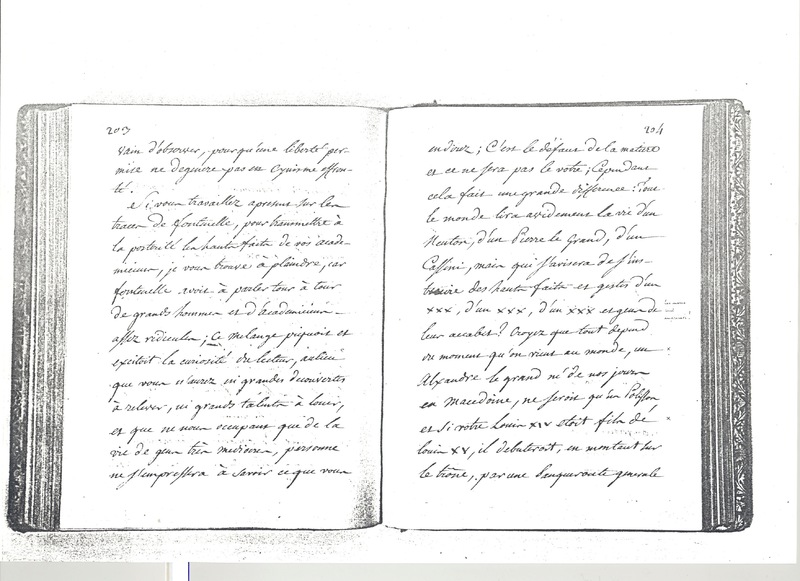 203
vain d'observer, pour qu'une liberté per-
mise ne degenere pas en Cynisme effron-
té.
Si vous travaillez apresent sur les
traces de fontenelle, pour transmettre à
la posterité les hauts faits de vos acade-
miciens, je vous trouve à plaindre, car
fontenelle avoit à parler tour à tour
de grands hommes et d'academiciens
assez ridicules; Ce melange piquoit et
excitoit la curiosité du lecteur, au lieu
que vous n'aurez ni grandes decouvertes
à relever, ni grands talents à louer,
et que ne vous occupant que de la
vie de gens tres mediocres, personne
ne s'empressera à savoir ce que vous
204
en direz; C'est le defaut de la matiere
et ce ne sera pas le votre; Cependant
cela fait une grande difference: Tout
le monde lira avidement la vie d'un
Neuton, d'un Pierre le Grand, d'un
Cassini, mais qui s'avisera de s'ins-
truire des hauts faits et gestes d'un
xxx, d'un xxx, d'un xxx et gens de
leur acabit? Croyez que tout depend
du moment qu'on vient au monde, un
Alexandre le grand né de nos jours
en Macedoine, ne seroit qu'un Polisson
et si votre Louis XIV etoit fils de
louis XV, il debuteroit, en montant sur
le trône, par une banqueroute generale